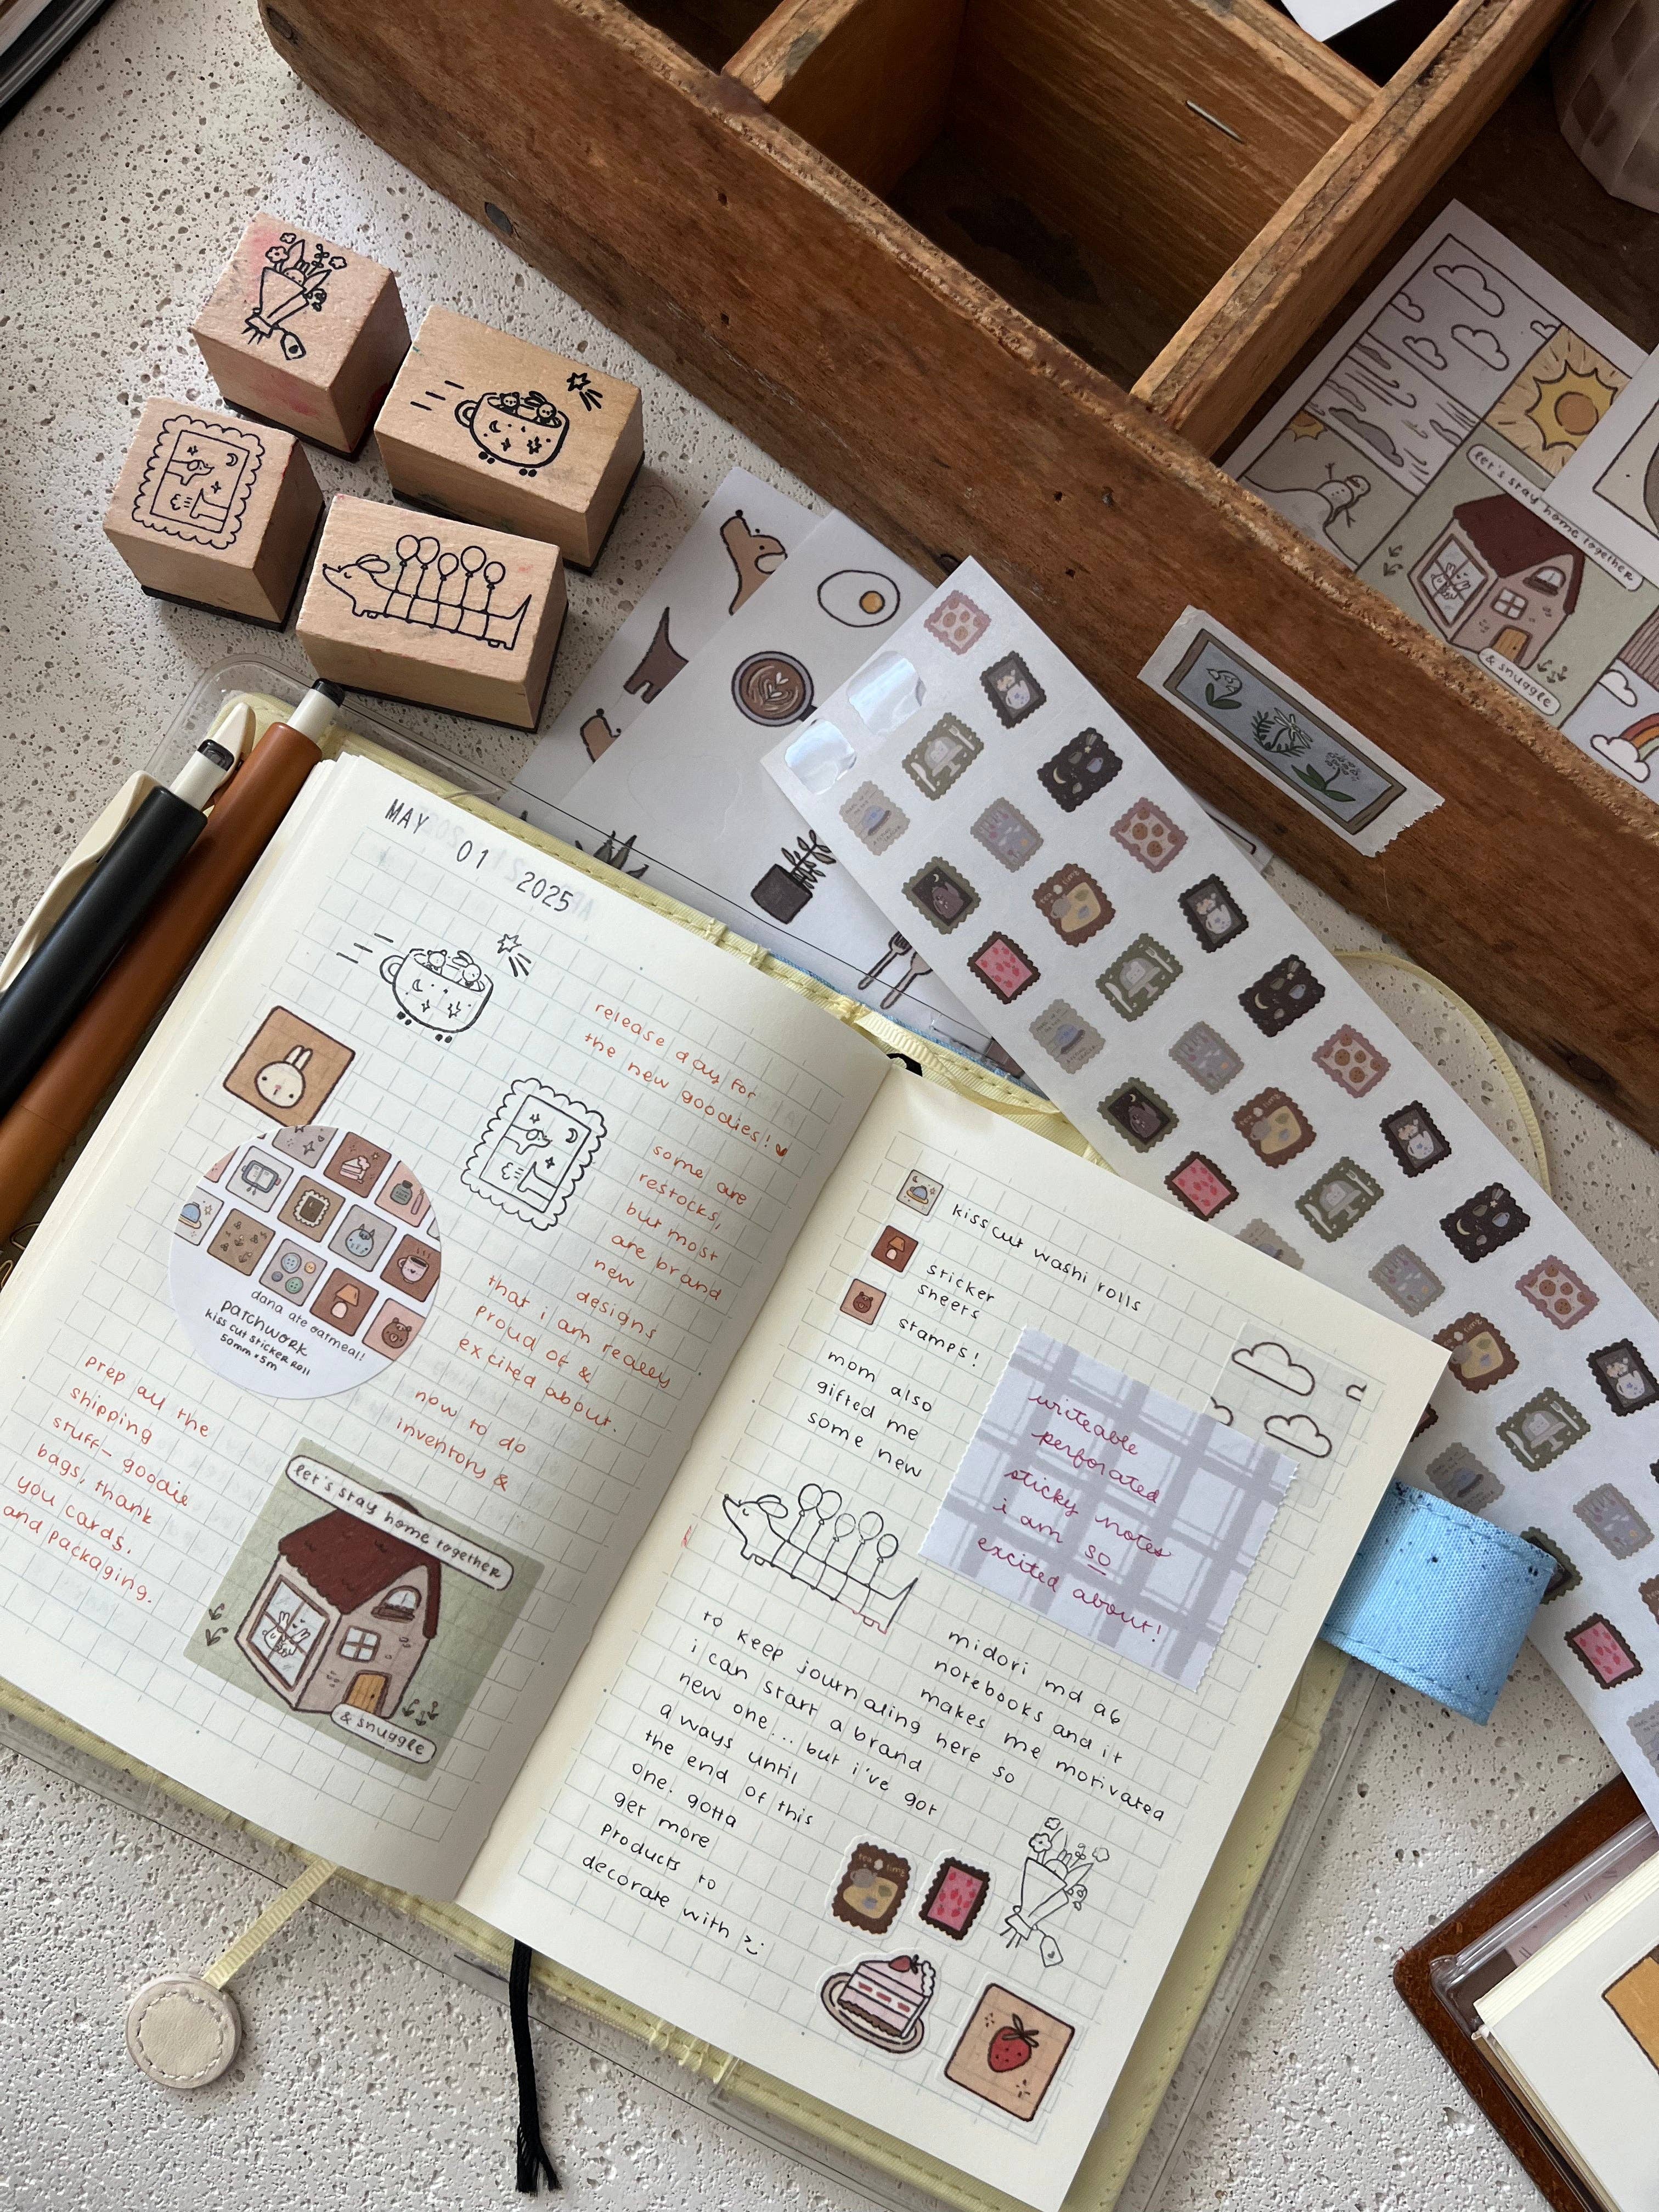 MAY
01
2025
release day for
the new goodies!
some are
restocks,
but most
are brand
new
designs
that i am really
proud of &
excited about.
now to do
inventory &
prep all the
shipping
stuff- goodie
bags, thank
you cards,
and packaging.
dana ate oatmeal!
patchwork
kiss cut sticker roll
50mm × 5m
let's stay home together
& snuggle
kiss cut washi rolls
sticker
sheets
stamps!
mom also
gifted me
some new
writeable
perforated
sticky notes
i am so
excited about!
midori md a6
notebooks and it
makes me motivated
to keep journaling here so
i can start a brand
new one... but i've got
a ways until
the end of this
one. gotta
get more
products to
decorate with :)
tea time
let's stay home together
& snuggle
tea time
tea time
tea time